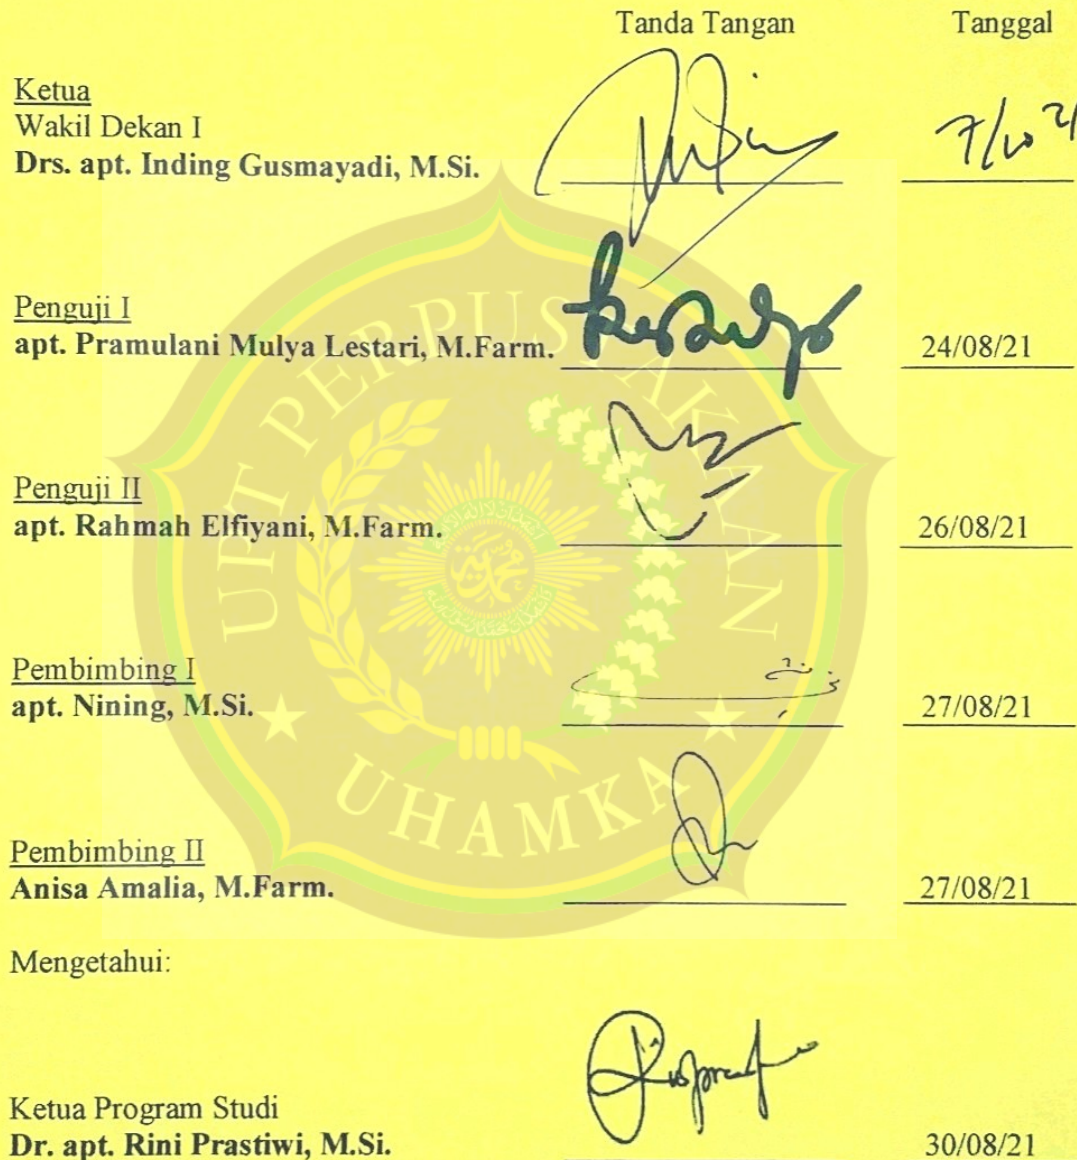 Tanda Tangan Tanggal
Ketua
Wakil Dekan I
Drs. apt. Inding Gusmayadi, M.Si. 7/10 21
Penguji I
apt. Pramulani Mulya Lestari, M.Farm. 24/08/21
Penguji II
apt. Rahmah Elfiyani, M.Farm. 26/08/21
Pembimbing I
apt. Nining, M.Si. 27/08/21
Pembimbing II
Anisa Amalia, M.Farm. 27/08/21
Mengetahui:
Ketua Program Studi
Dr. apt. Rini Prastiwi, M.Si. 30/08/21
UPT PERPUSTAKAAN
UHAMKA